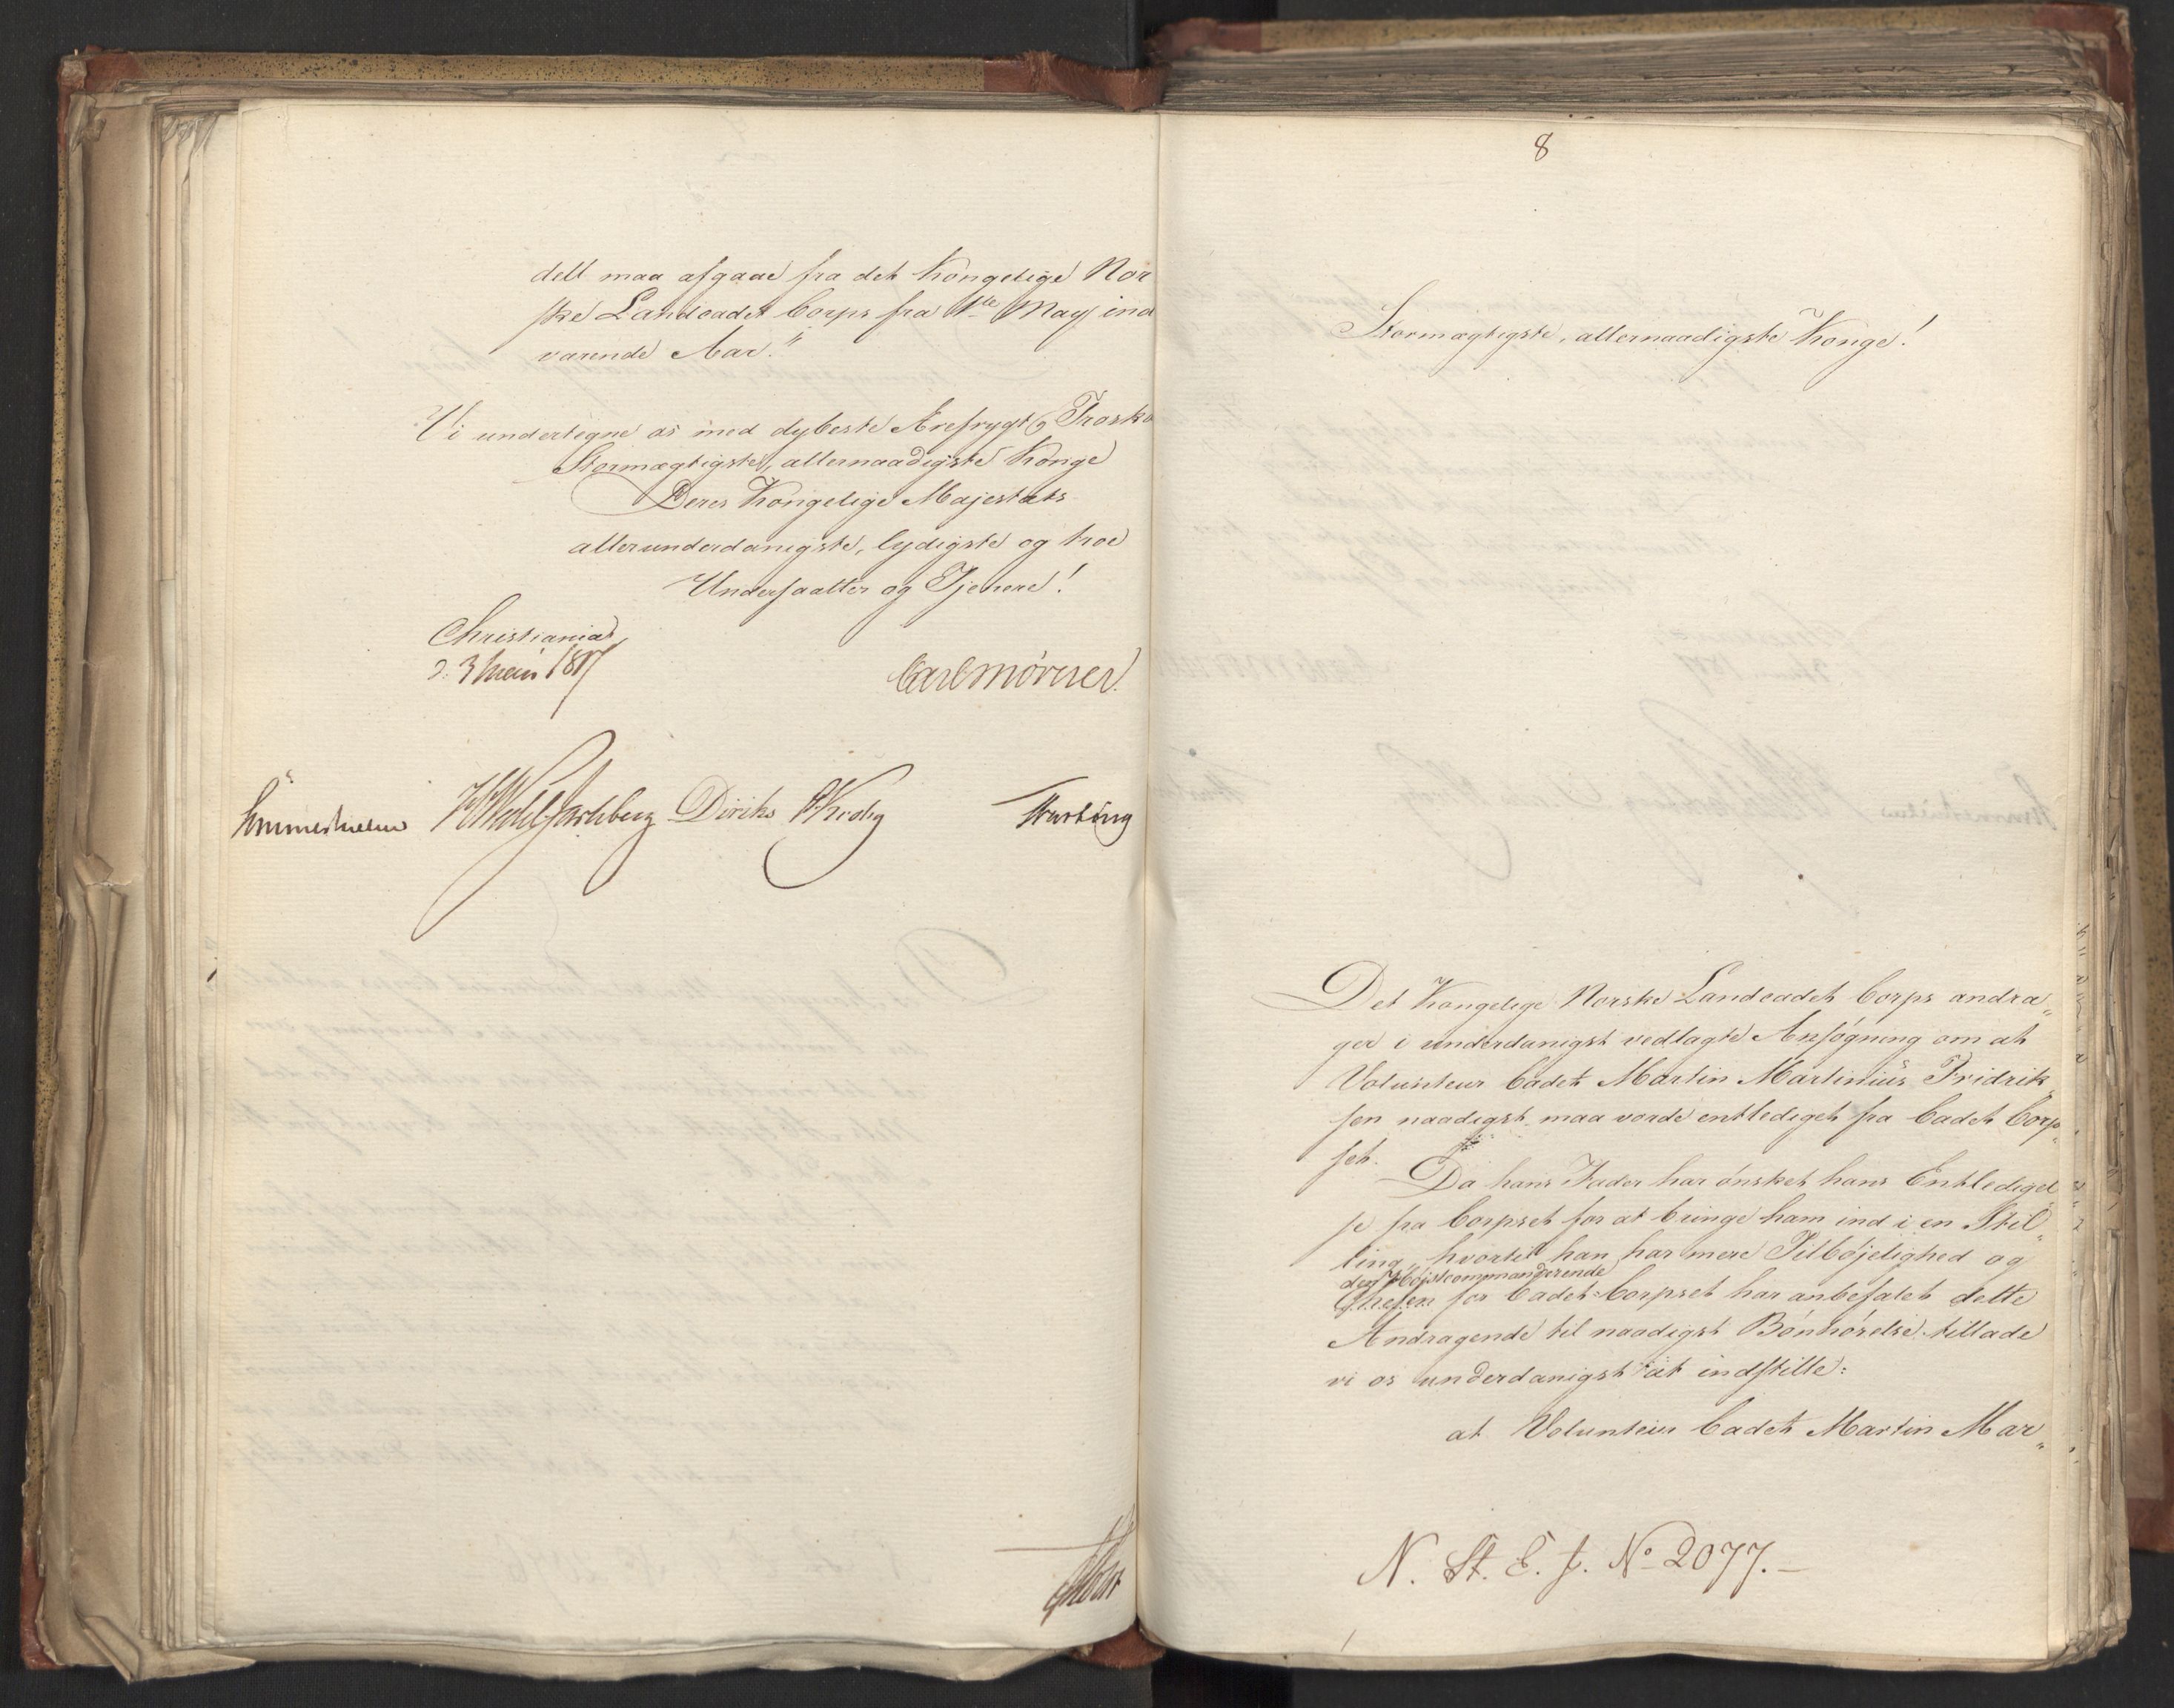 dell maa afgaae fra det Kongelige Nor
ske Landcadet Corps fra 1ste May ind
varende Aar."
Vi undertegne os med dybeste Ærefrygt og Troska
Stormægtigste, allernaadigste Konge
Deres Kongelige Majestæts
allerunderdanigste, lydigste og troe
Undersaatter og Tjenere!
Christiania
d. 3 Maii 1817
Carl Mörner.
Sommerhielm HWedel Jarlsberg Diriks Krohg Hartvig
8
Stormægtigste, allernaadigste Konge!
Det Kongelige Norske Landcadet Corps andra„
ger i underdanigst vedlagte Ansøgning om at
Volunteur Cadet Martin Martinius Fridrik
sen naadigst maa vorde entlediget fra Cadet Corp„
set.
Da hans Fader har ønsket hans Entledigel
se fra Corpset for at bringe ham ind i en Stil„
ling, hvortil han har mere Tilbøjelighed og
den Højstcommanderende
Chefen for Cadet-Corpset har anbefalet dette
Andragende til naadigst Bønhørelse tillade
vi os underdanigst at indstille:
at Volunteur Cadet Martin Mar„
N. St. E. J. No 2077.